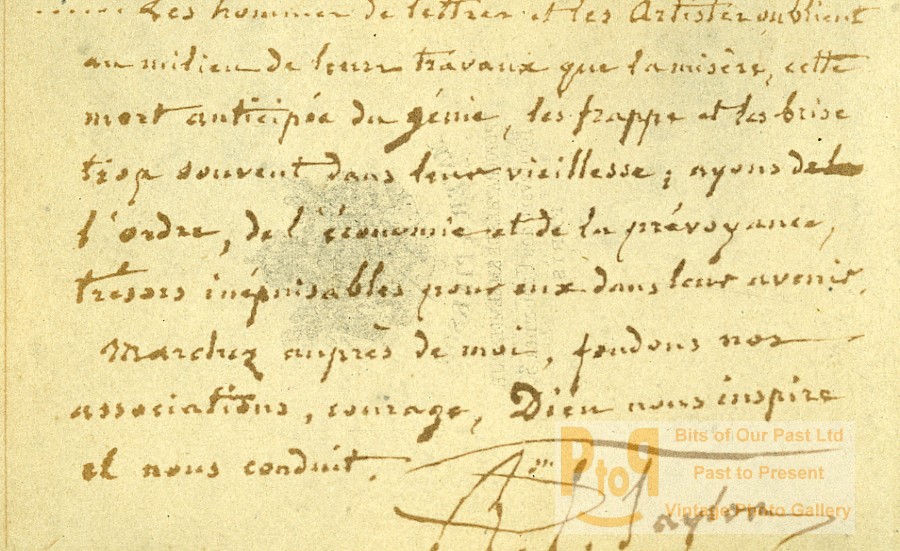 ..... Les hommes de lettres et les Artistes oublient
au milieu de leurs travaux que la misère, cette
mort anticipée du génie, les frappe et les brise
trop souvent dans leur vieillesse; ayons de
l'ordre, de l'économie et de la prévoyance,
trésors inépuisables pour eux dans leur avenir.
Marchez auprès de moi, fondons nos
associations, courage, Dieu nous inspire
et nous conduit.
Bon J. Taylor
PtoP
Bits of Our Past Ltd
Past to Present
Vintage Photo Gallery